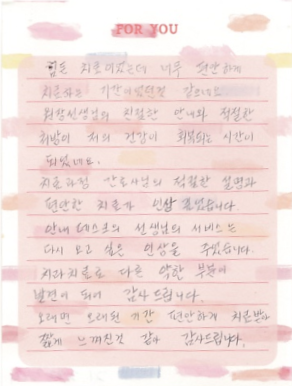 FOR YOU
힘든 치료이었는데 너무 편안하게
치료하는 기간이었던것 같네요
원장선생님의 친절한 안내와 적절한
처방이 저의 건강이 회복되는 시간이
되었네요.
치료과정 간호사님의 적절한 설명과
편안한 치료가 인상 깊었습니다
안내 데스크의 선생님의 서비스는
다시 오고 싶은 인상을 주었습니다.
치과치료로 다른 약한 부분이
발견이 되어 감사드립니다.
오래면 오래된 기간 편안하게 치료받아
짧게 느껴진것 같아 감사드립니다.